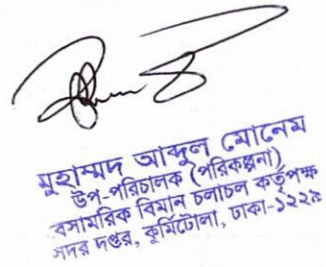 মুহাম্মদ আব্দুল মোনেম
উপ-পরিচালক (পরিকল্পনা)
বসামরিক বিমান চলাচল কর্তৃপক্ষ
সদর দপ্তর, কুর্মিটোলা, ঢাকা-১২২৯